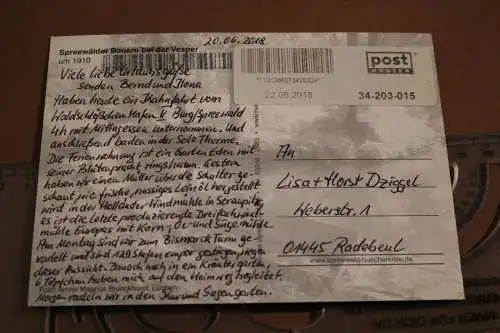 20.06.2018
Spreewälder Bauern bei der Vesper
um 1910
Viele liebe Urlaubsgrüße
senden Bernd und Ilona
Haben heute ein Kahnfahrt vom
Waldschlößchen Hafen Burg/Spreewald
4h mit Mittagessen unternommen. Und
anschließend baden in der Sole Therme.
Die Ferienwohnung ist ein Garten Eden mit
seiner Blütenpracht ringsherum. Gestern
haben wir einen Müller über die Schulter ge-
schaut wie frisches, nussiges Leinöl hergestellt
wird in der Holländer Windmühle in Straupitz,
es ist die letzte produzierende Dreifachwind-
mühle Europas mit Korn-, Öl- und Sägemühle
Am Montag sind wir zum Bismarck Turm ge-
radelt und sind 129 Stufen empor gestiegen wegen
dieser Aussicht. Danach noch in ein Kräutergarten
6 Töpfchen haben mich auf den Heimweg begleitet.
Morgen radeln wir in den Kur und Sagengarten.
Foto: Archiv Magnus Brunckhorst, Lübben
22.06.2018
34-203-015
post
MODERN
An
Lisa + Horst Dziggel
Weberstr. 1
01445 Radebeul
www.spreewald-buecherkiste.de